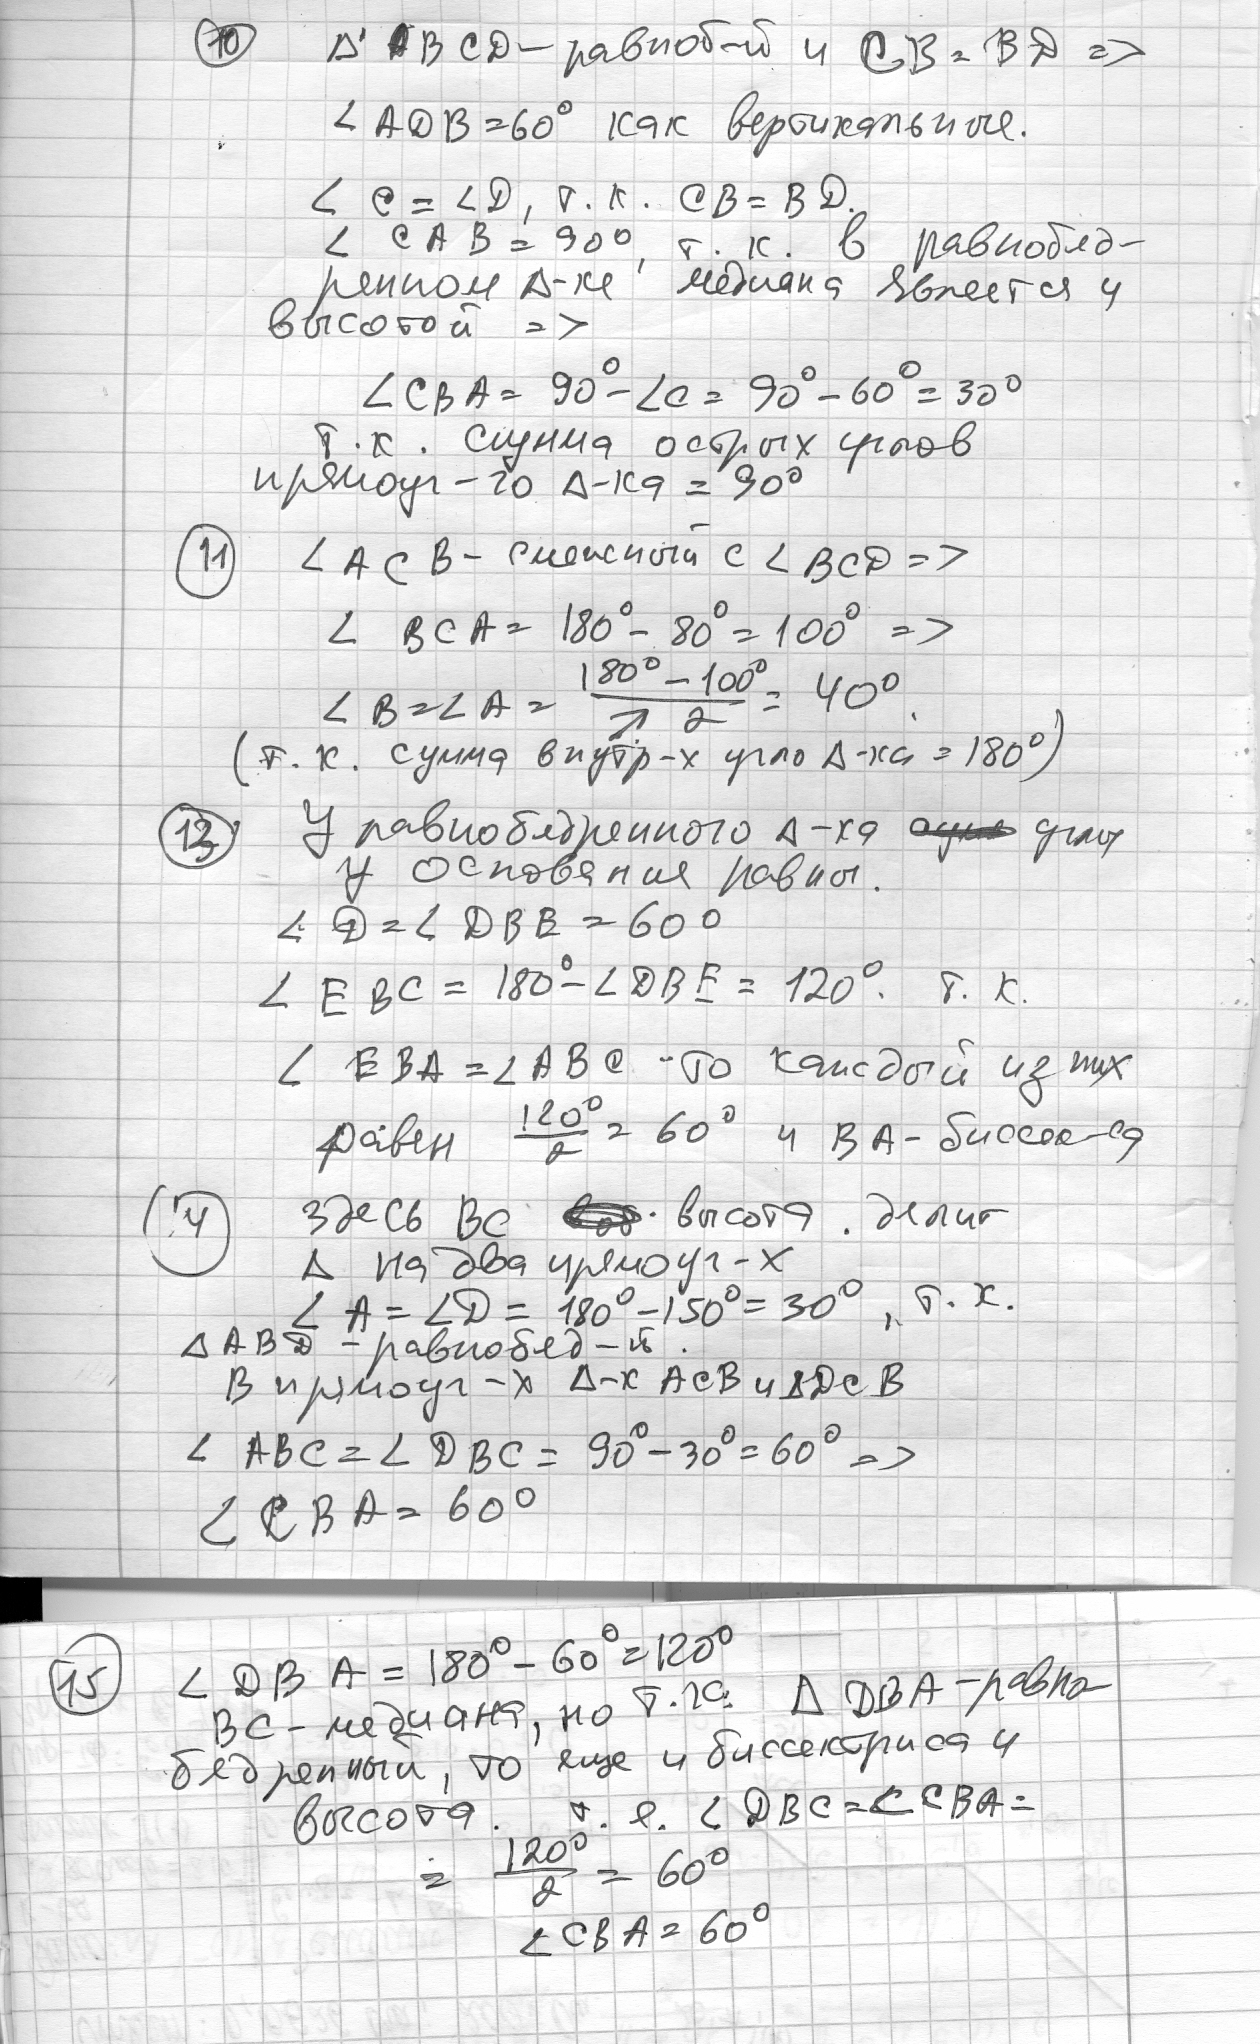 10 Δ BCD – равноб-й и CB = BD =>
∠ ADB = 60° как вертикальные.
∠ C = ∠D, т.к. CB = BD.
∠ CAB = 90°, т.к. в равнобед-
ренном Δ-ке медиана является и
высотой =>
∠CBA = 90° – ∠C = 90° – 60° = 30°
т.к. сумма острых углов
прямоуг-го Δ-ка = 90°
11 ∠ACB – смежный с ∠BCD =>
∠ BCA = 180° – 80° = 100° =>
∠ B = ∠ A = (180° – 100°)/2 = 40°.
(т.к. сумма внутр-х угло Δ-ка = 180°)
13 У равнобедренного Δ-ка углы
у основания равны.
∠ D = ∠ DBE = 60°
∠ EBC = 180° – ∠DBE = 120°. т.к.
∠ EBA = ∠ABC – то каждый из них
равен 120°/2 = 60° и BA – биссек-са
14 Здесь BC высота. делит
Δ на два прямоуг-х
∠ A = ∠D = 180° – 150° = 30°, т.к.
Δ ABD – равнобед-й.
В прямоуг-х Δ-х ACB и ΔDCB
∠ ABC = ∠ DBC = 90° – 30° = 60° =>
∠ CBA = 60°
15 ∠ DBA = 180° – 60° = 120°
BC – медиана, но т.к. Δ DBA – равно-
бедренный, то еще и биссектриса и
высота. т.е. ∠ DBC = ∠CBA =
= 120°/2 = 60°
∠CBA = 60°